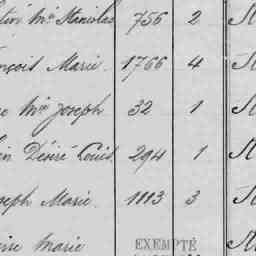 Mie Stanislas 756 2
nçois Marie. 1766 4
Mie Joseph 32 1
Désiré Louis. 294 1
seph Marie. 1113 3
Marie EXEMPTÉ